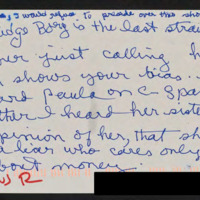 I would refuse to preside over this sho
udge Borg is the last stra
er just calling h
shows your bias..
ard Paula on C-Span
ter I heard her siste
pinion of her, that sh
a liar who cares only
bout money.
R